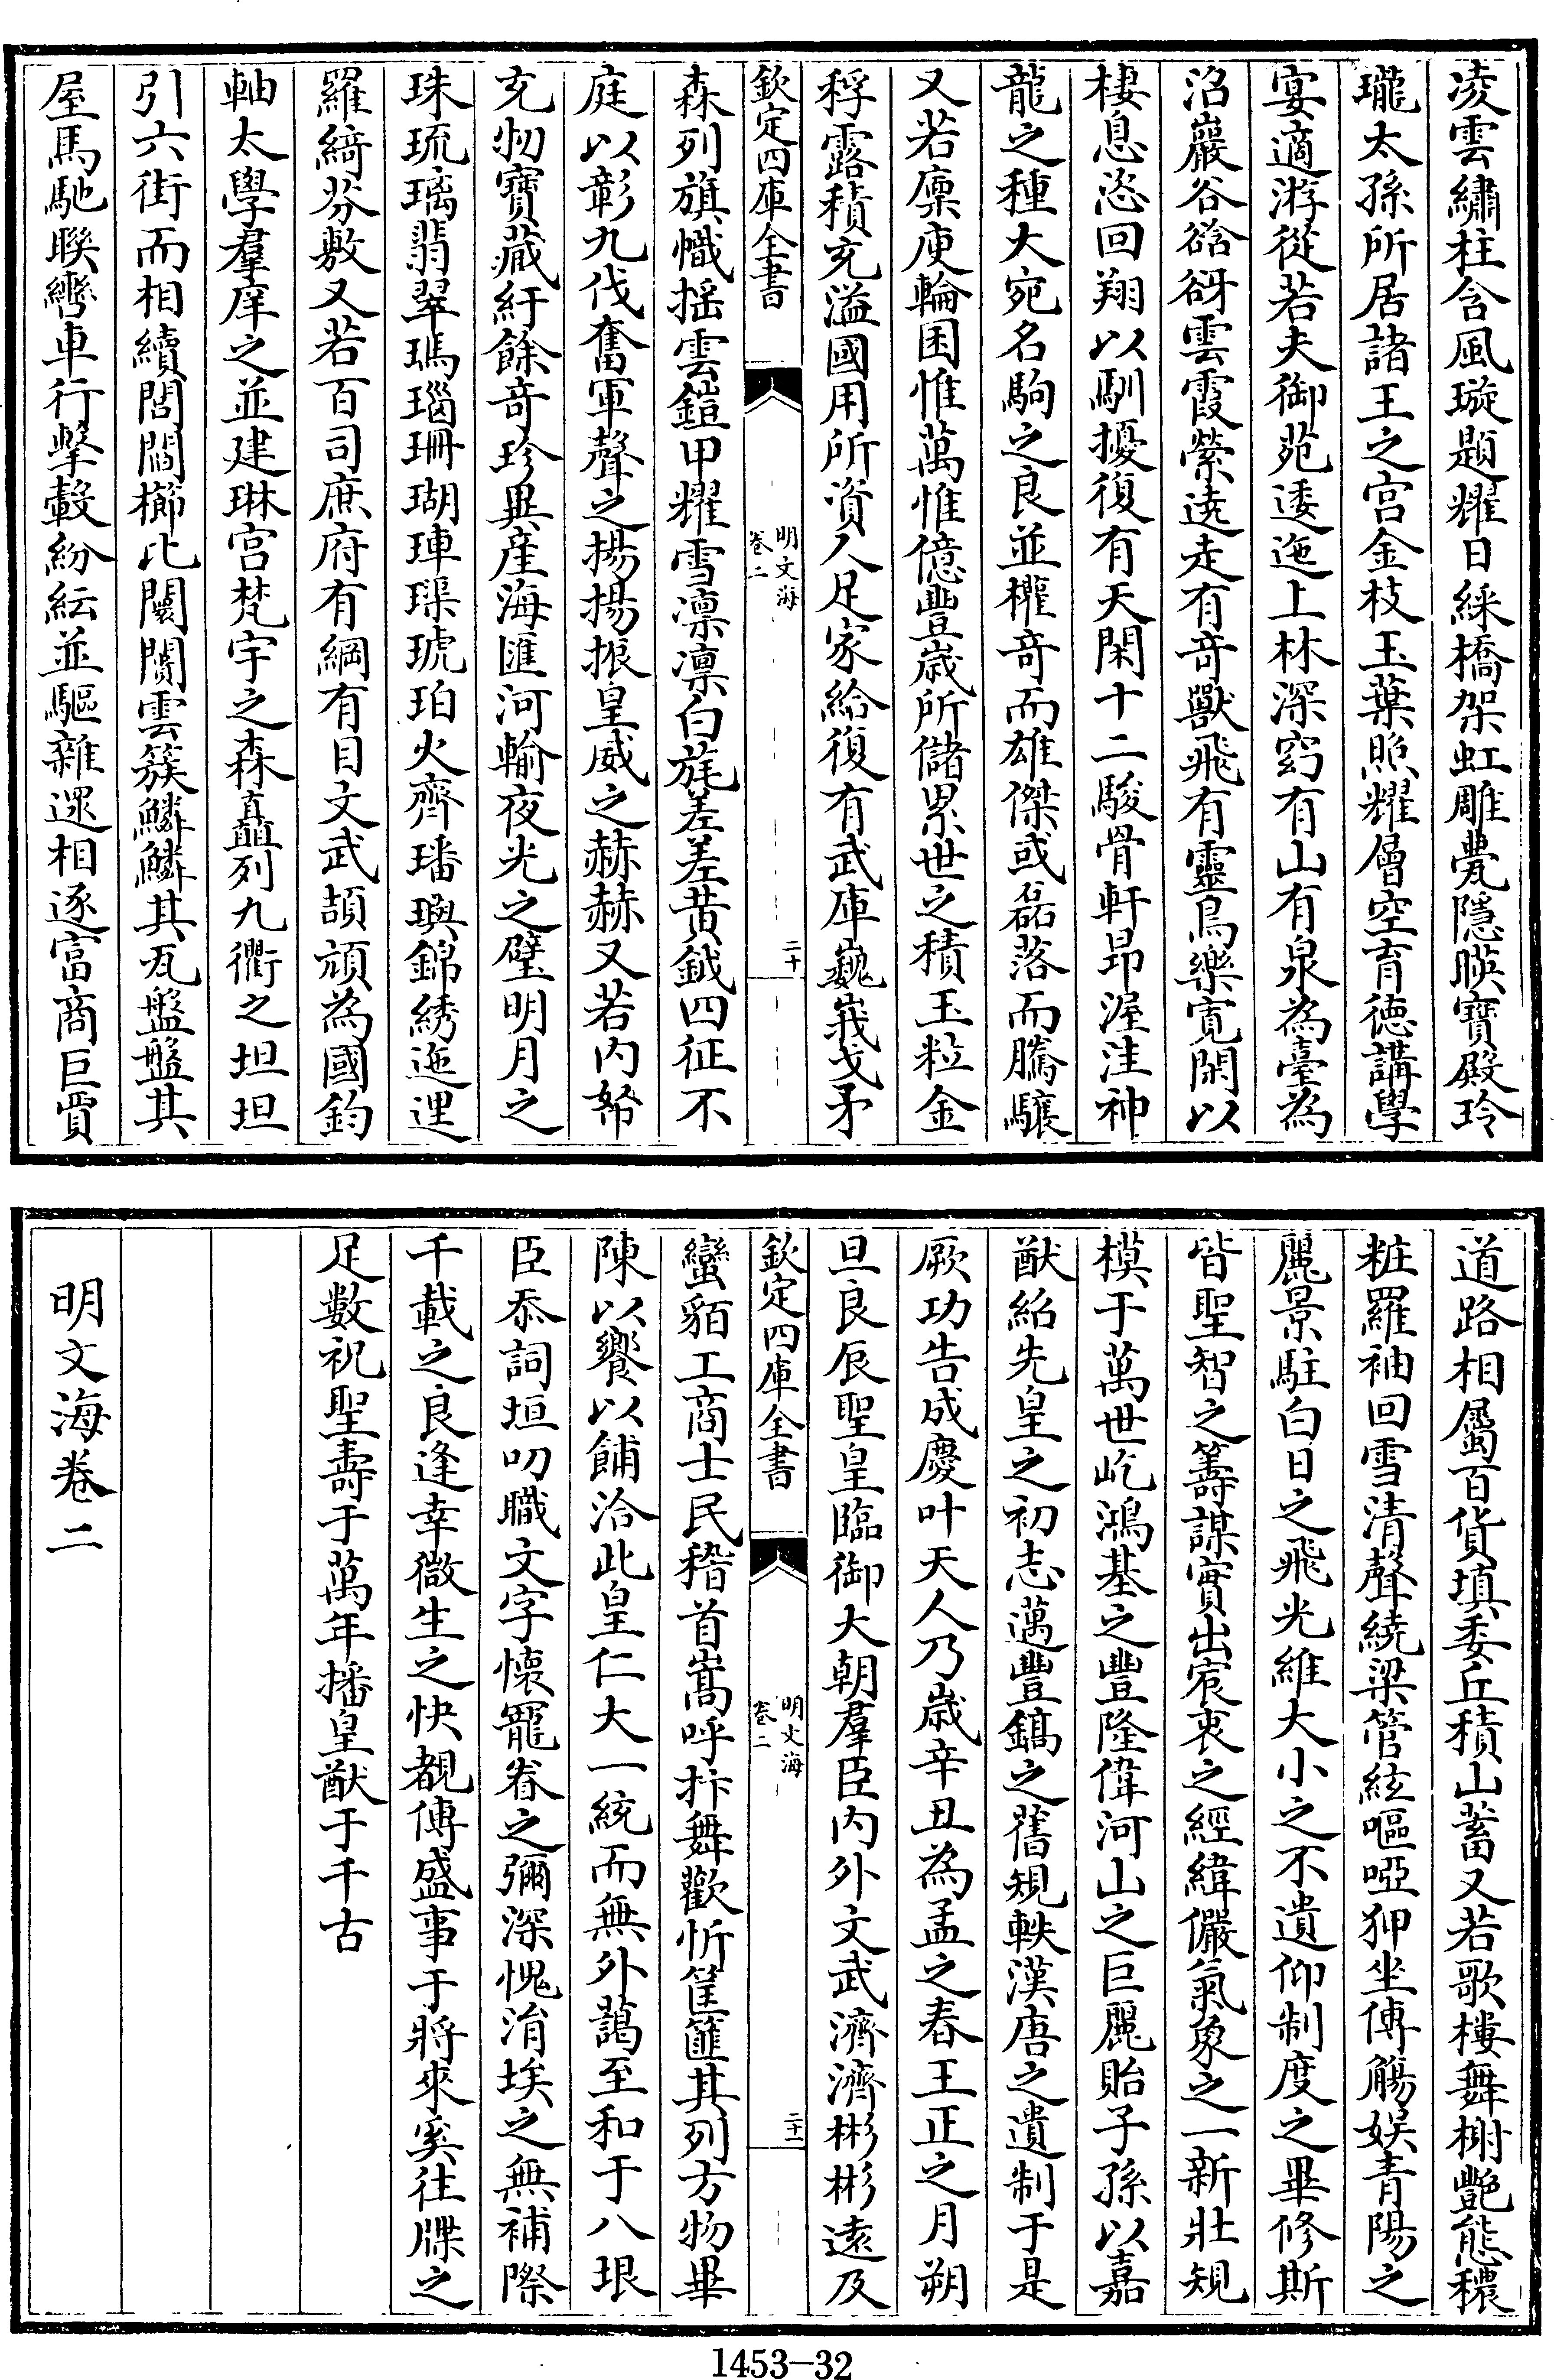 凌雲繡柱含風璇題耀日綵橋架虹雕甍隱暎寶殿玲
瓏太孫所居諸王之宫金枝玉葉照耀層空育德講學
宴適游從若夫御苑逶迤上林深窈有山有泉為臺為
沼巖谷谽谺雲霞縈遶走有奇獸飛有靈鳥樂寬閑以
棲息恣回翔以馴擾復有天閑十二駿骨軒昂渥洼神
龍之種大宛名駒之良並權奇而雄傑或磊落而騰驤
又若廪庾輪囷惟萬惟億豐嵗所儲累世之積玉粒金
稃露積充溢國用所資人足家給復有武庫巍峩戈矛
欽定四庫全書
明文海
卷二
二十
森列旗幟揺雲鎧甲耀雪凛凛白旄差差黄鉞四征不
庭以彰九伐奮軍聲之揚揚振皇威之赫赫又若内帑
充牣寶藏紆餘奇珍異産海匯河輸夜光之璧明月之
珠琉璃翡翠瑪瑙珊瑚車璖琥珀火齊璠璵錦綉迤逦
羅綺芬敷又若百司庶府有綱有目文武頡頏為國鈞
軸太學羣庠之並建琳宫梵宇之森矗列九衢之坦坦
引六街而相續閭閻櫛比闤闠雲簇鱗鱗其瓦盤盤其
屋馬馳聯轡車行擊轂紛紜並驅雜遝相逐富商巨賈
道路相屬百貨填委丘積山蓄又若歌樓舞榭艷態穠
粧羅袖回雪清聲繞梁管絃嘔啞狎坐傳觴娱青陽之
麗景駐白日之飛光維大小之不遺仰制度之畢修斯
皆聖智之籌謀實出宸衷之經緯儼氣象之一新壯規
模于萬世屹鴻基之豐隆偉河山之巨麗貽子孫以嘉
猷紹先皇之初志邁豐鎬之舊規軼漢唐之遺制于是
厥功告成慶叶天人乃嵗辛丑為孟之春王正之月朔
旦良辰聖皇臨御大朝羣臣内外文武濟濟彬彬遠及
欽定四庫全書
明文海
卷二
二十一
蠻貊工商士民稽首嵩呼抃舞歡忻筐篚其列方物畢
陳以饗以餔洽此皇仁大一統而無外藹至和于八垠
臣忝詞垣叨職文字懷寵眷之彌深愧涓埃之無補際
千載之良逢幸微生之快覩傳盛事于將來奚往牒之
足數祝聖壽于萬年播皇猷于千古
明文海卷二
1453-32